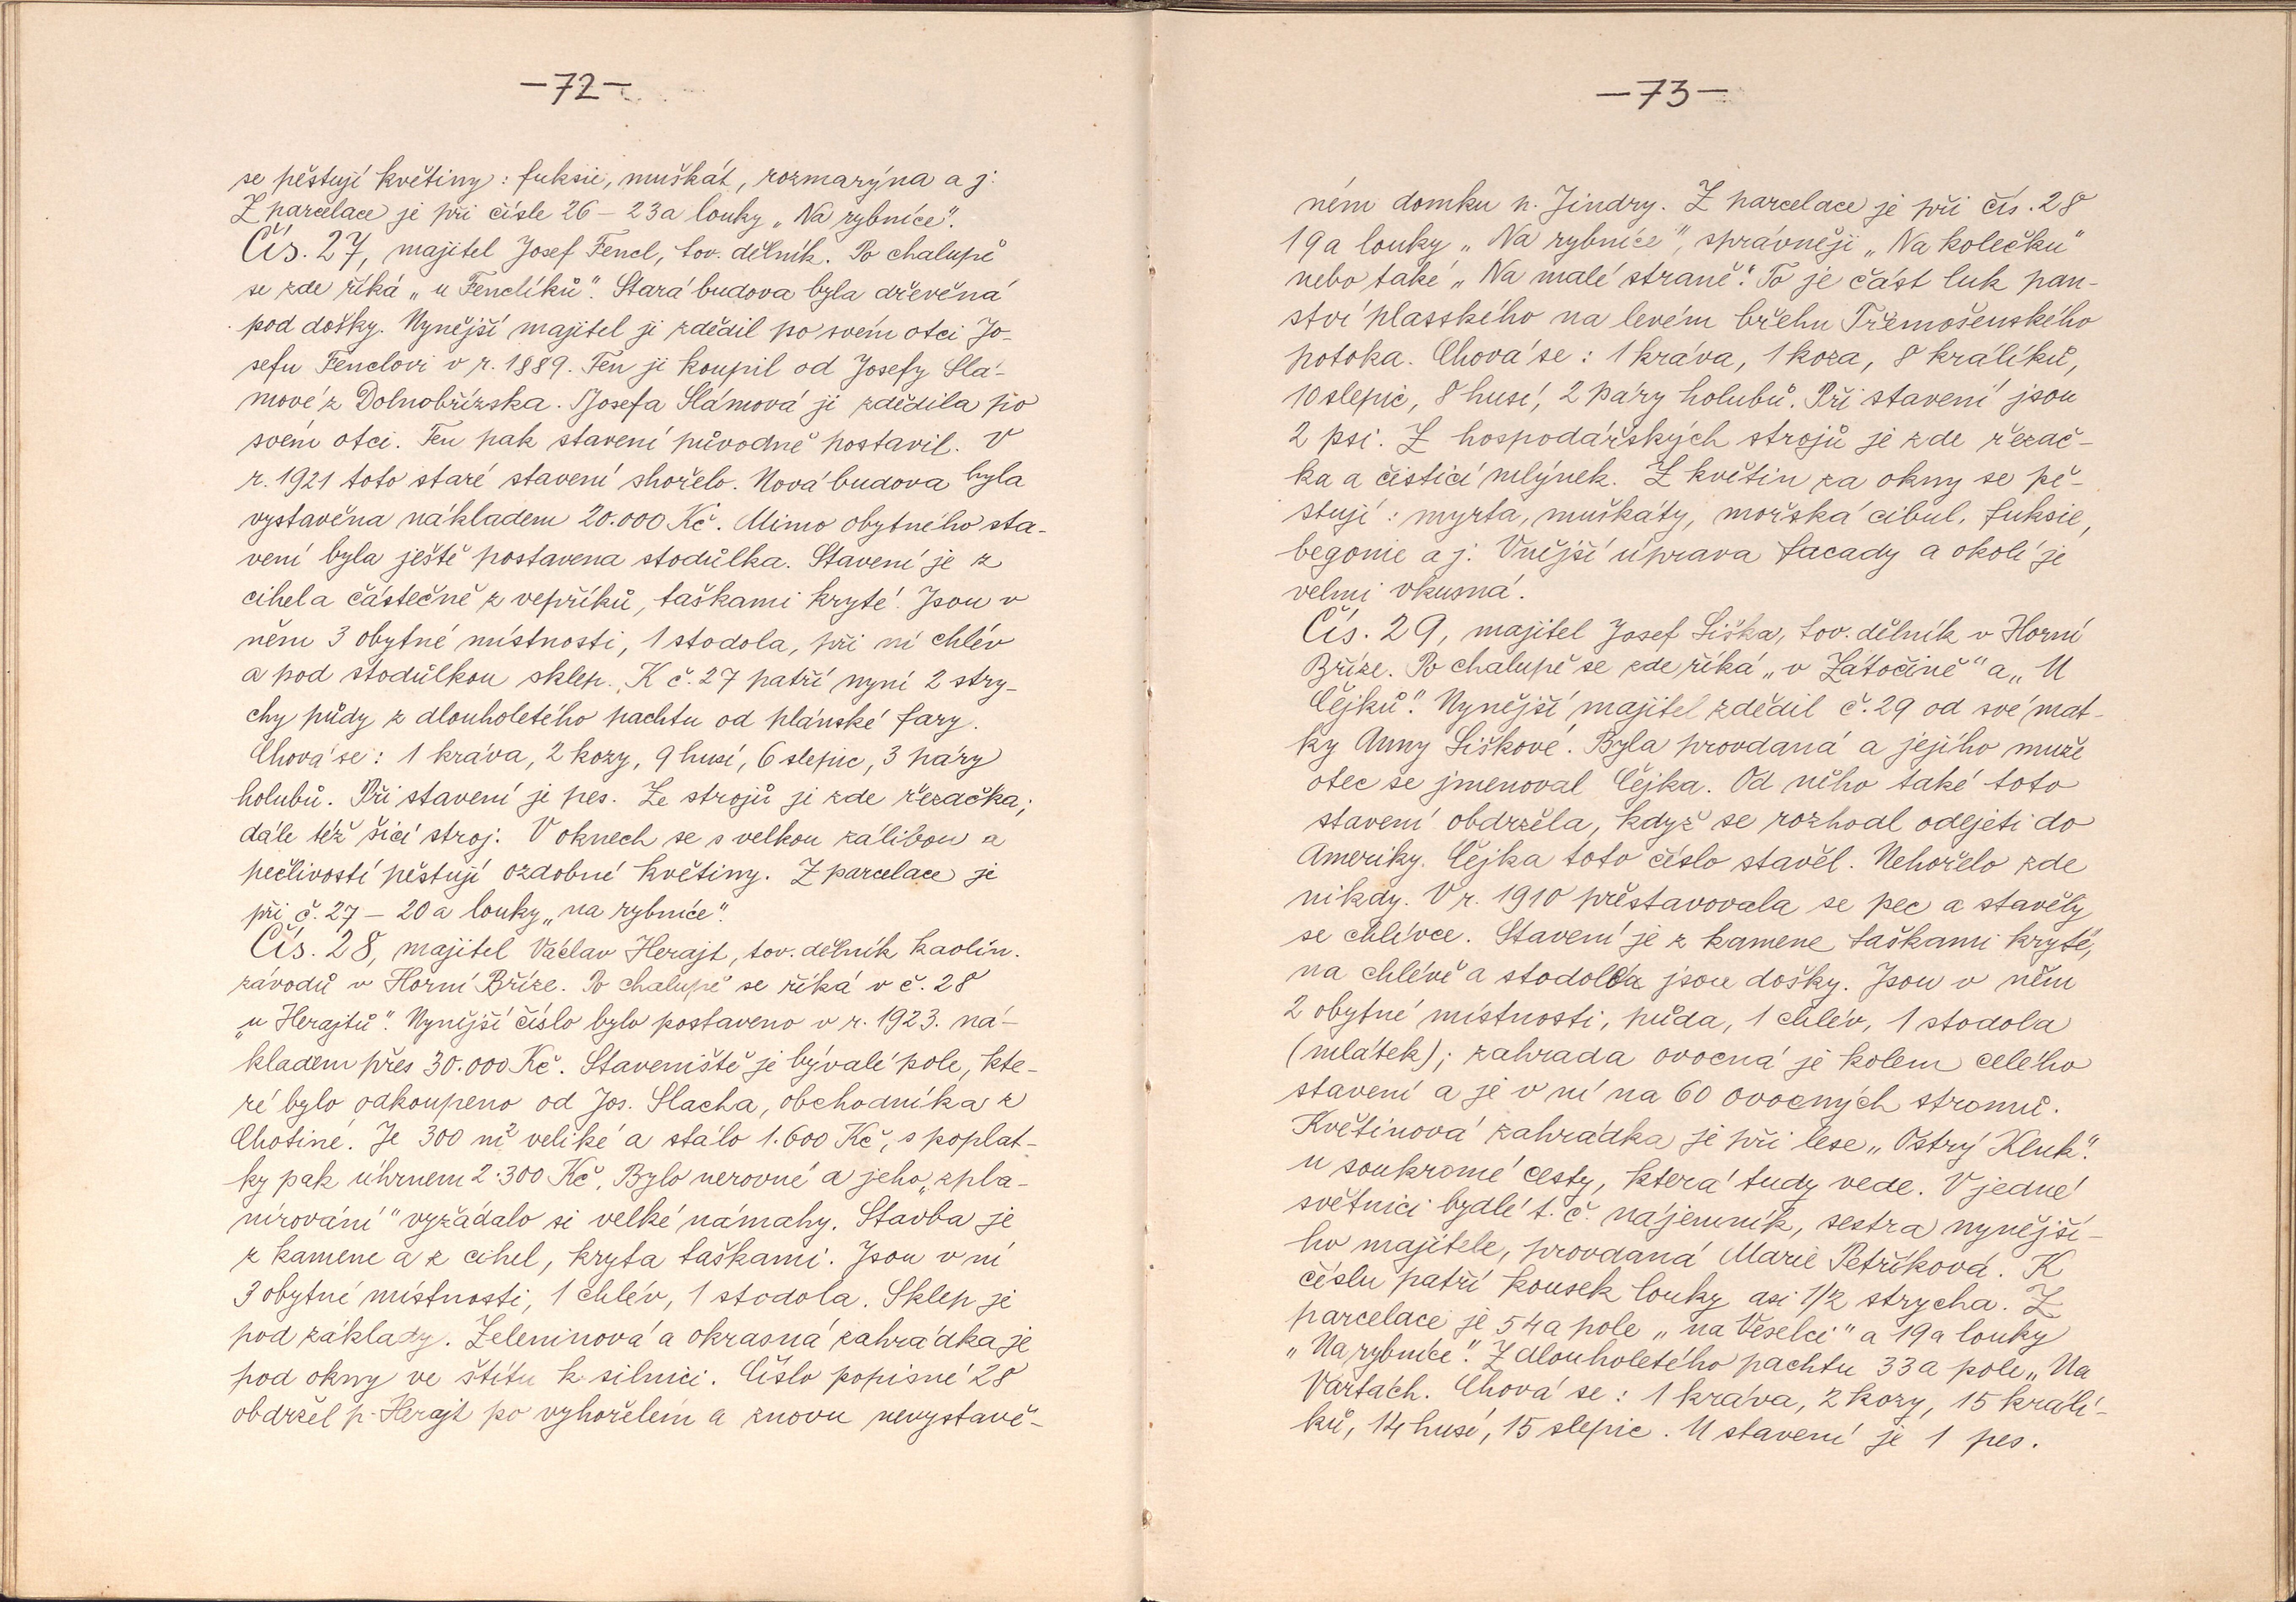 —72—
se pěstují květiny: fuksie, muškát, rozmarýna a j.
Z parcelace je při čísle 26 – 23a louky „Na rybníce".
Čís. 27, majitel Josef Fencl, tov. dělník. Po chalupě
se zde říká „u Fenclíků". Stará budova byla dřevěná
pod došky. Nynější majitel ji zdědil po svém otci Jo-
sefu Fenclovi v r. 1889. Ten ji koupil od Josefy Slá-
mové z Dolnobřízska. Josefa Slámová ji zdědila po
svém otci. Ten pak stavení původně postavil. V
r. 1921 toto staré stavení shořelo. Nová budova byla
vystavěna nákladem 20.000 Kč. Mimo obytného sta-
vení byla ještě postavena stodůlka. Stavení je z
cihel a částečně z vepříků, taškami kryté. Jsou v
něm 3 obytné místnosti, 1 stodola, při ní chlév
a pod stodůlkou sklep. K č. 27 patří nyní 2 stry-
chy půdy z dlouholetého pachtu od plánské fary.
Chová se: 1 kráva, 2 kozy, 9 husí, 6 slepic, 3 páry
holubů. Při stavení je pes. Ze strojů je zde řezačka;
dále též šicí stroj. V oknech se s velkou zálibou a
pečlivostí pěstují ozdobné květiny. Z parcelace je
při č. 27 – 20a louky „na rybníce".
Čís. 28, majitel Václav Herajt, tov. dělník kaolin.
závodů v Horní Bříze. Po chalupě se říká v č. 28
„u Herajtů". Nynější číslo bylo postaveno v r. 1923. ná-
kladem přes 30.000 Kč. Staveniště je bývalé pole, kte-
ré bylo odkoupeno od Jos. Slacha, obchodníka z
Chotiné. Je 300 m² veliké a stálo 1.600 Kč, s poplat-
ky pak úhrnem 2.300 Kč. Bylo nerovné a jeho „zpla-
nírování" vyžádalo si velké námahy. Stavba je
z kamene a z cihel, kryta taškami. Jsou v ní
3 obytné místnosti, 1 chlév, 1 stodola. Sklep je
pod základy. Zeleninová a okrasná zahrádka je
pod okny ve štítu k silnici. Číslo popisné 28
obdržel p. Herajt po vyhořelém a znovu nevystavě-
—73—
ném domku p. Jindry. Z parcelace je při čís. 28
19a louky „Na rybníce", správněji „Na kolečku"
nebo také „Na malé straně". To je část luk pan-
ství plasského na levém břehu Třemošenského
potoka. Chová se: 1 kráva, 1 koza, 8 králíků,
10 slepic, 8 husí, 2 páry holubů. Při stavení jsou
2 psi. Z hospodářských strojů je zde řezač-
ka a čistící mlýnek. Z květin za okny se pě-
stují: myrta, muškáty, mořská cibul, fuksie,
begonie a j. Vnější úprava facady a okolí je
velmi vkusná.
Čís. 29, majitel Josef Liška, tov. dělník v Horní
Bříze. Po chalupě se zde říká „v Zátočině" a „U
Čejků". Nynější majitel zdědil č. 29 od své mat-
ky Anny Liškové. Byla provdaná a jejího muže
otec se jmenoval Čejka. Od něho také toto
stavení obdržela, když se rozhodl odejeti do
Ameriky. Čejka toto číslo stavěl. Nehořelo zde
nikdy. V r. 1910 přestavovala se pec a stavěly
se chlívce. Stavení je z kamene taškami kryté,
na chlévě a stodole jsou došky. Jsou v něm
2 obytné místnosti, půda, 1 chlév, 1 stodola
(mlátek); zahrada ovocná je kolem celého
stavení a je v ní na 60 ovocných stromů.
Květinová zahrádka je při lese „Ostrý Kluk".
u soukromé cesty, která tudy vede. V jedné
světnici bydlé t. č. nájemník, sestra nynější-
ho majitele, provdaná Marie Petříková. K
číslu patří kousek louky asi 1/2 strycha. Z
parcelace je 54a pole „na Veselci" a 19a louky
„Na rybníce". Z dlouholetého pachtu 33a pole „Na
Vartách. Chová se: 1 kráva, 2 kozy, 15 králí-
ků, 14 husí, 15 slepic. U stavení je 1 pes.